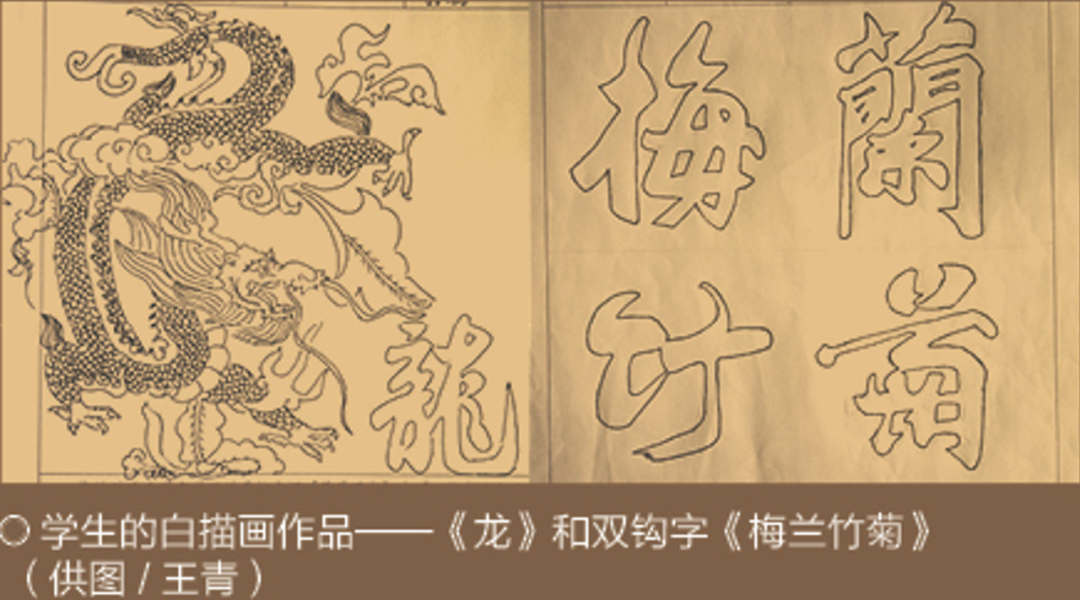 龍
梅 蘭
竹 菊
○ 学生的白描画作品——《龙》和双钩字《梅兰竹菊》
（供图 / 王青）